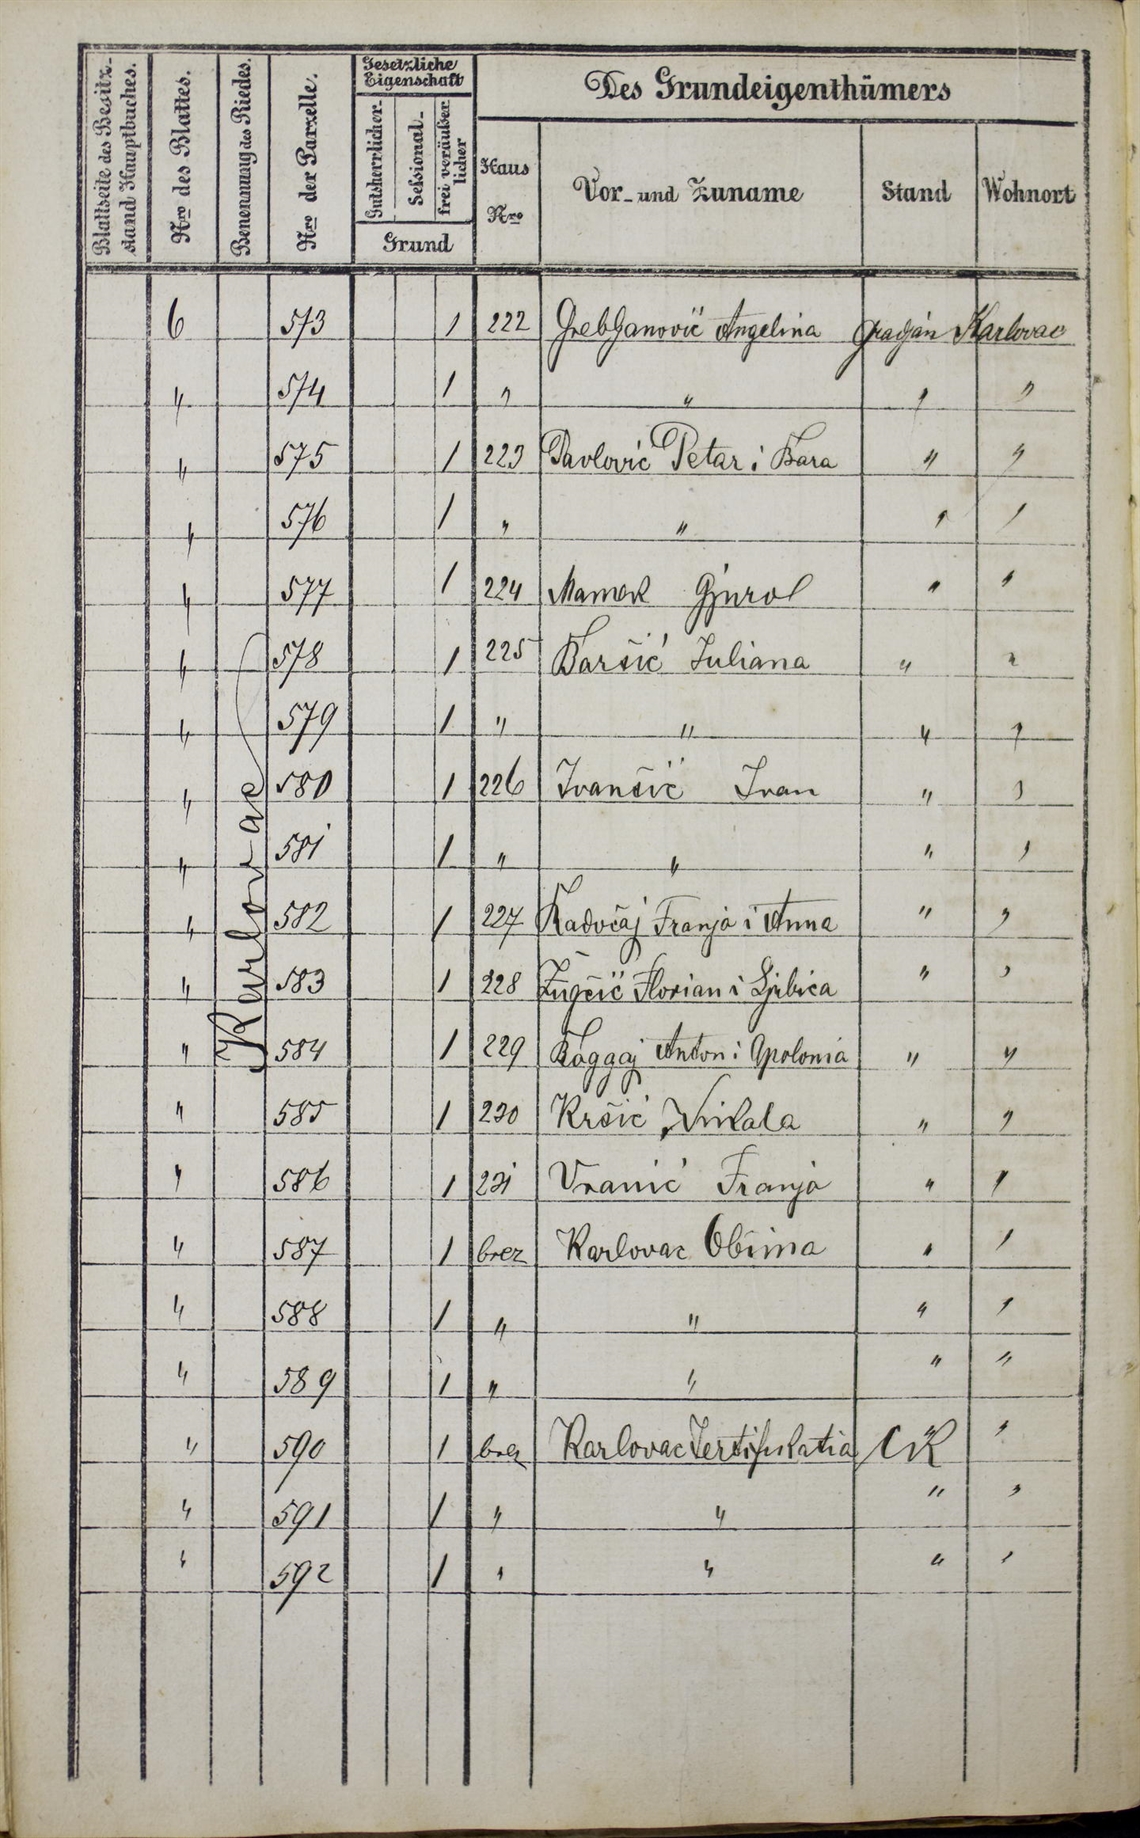 Blattseite des Besitz-
stand Hauptbuches.
Nro des Blattes.
Benennung des Riedes.
Nro der Parzelle.
Gesetzliche
Eigenschaft
Gutsherrlicher
Sessional-
frei veräußer
licher
Grund
Des Grundeigenthümers
Haus
Nro
Vor- und Zuname
Stand
Wohnort
Karlovac
6 573 1 222 Angelina Gradjan Karlovac
" 574 1 " " " "
" 575 1 223 Pavlović Petar i Bara " "
" 576 1 " " " "
" 577 1 224 Mamek " "
" 578 1 225 Baršić Juliana " "
" 579 1 " " " "
" 580 1 226 Ivančić Ivan " "
" 581 1 " " " "
" 582 1 227 Radočaj Franjo i Anna " "
" 583 1 228 Florian i " "
" 584 1 229 Anton i Apolonia " "
" 585 1 230 Kršić Nikola " "
" 586 1 231 Vranić Franjo " "
" 587 1 brez Karlovac Obćina " "
" 588 1 " " " "
" 589 1 " " " "
" 590 1 brez Karlovac CK "
" 591 1 " " " "
" 592 1 " " " "